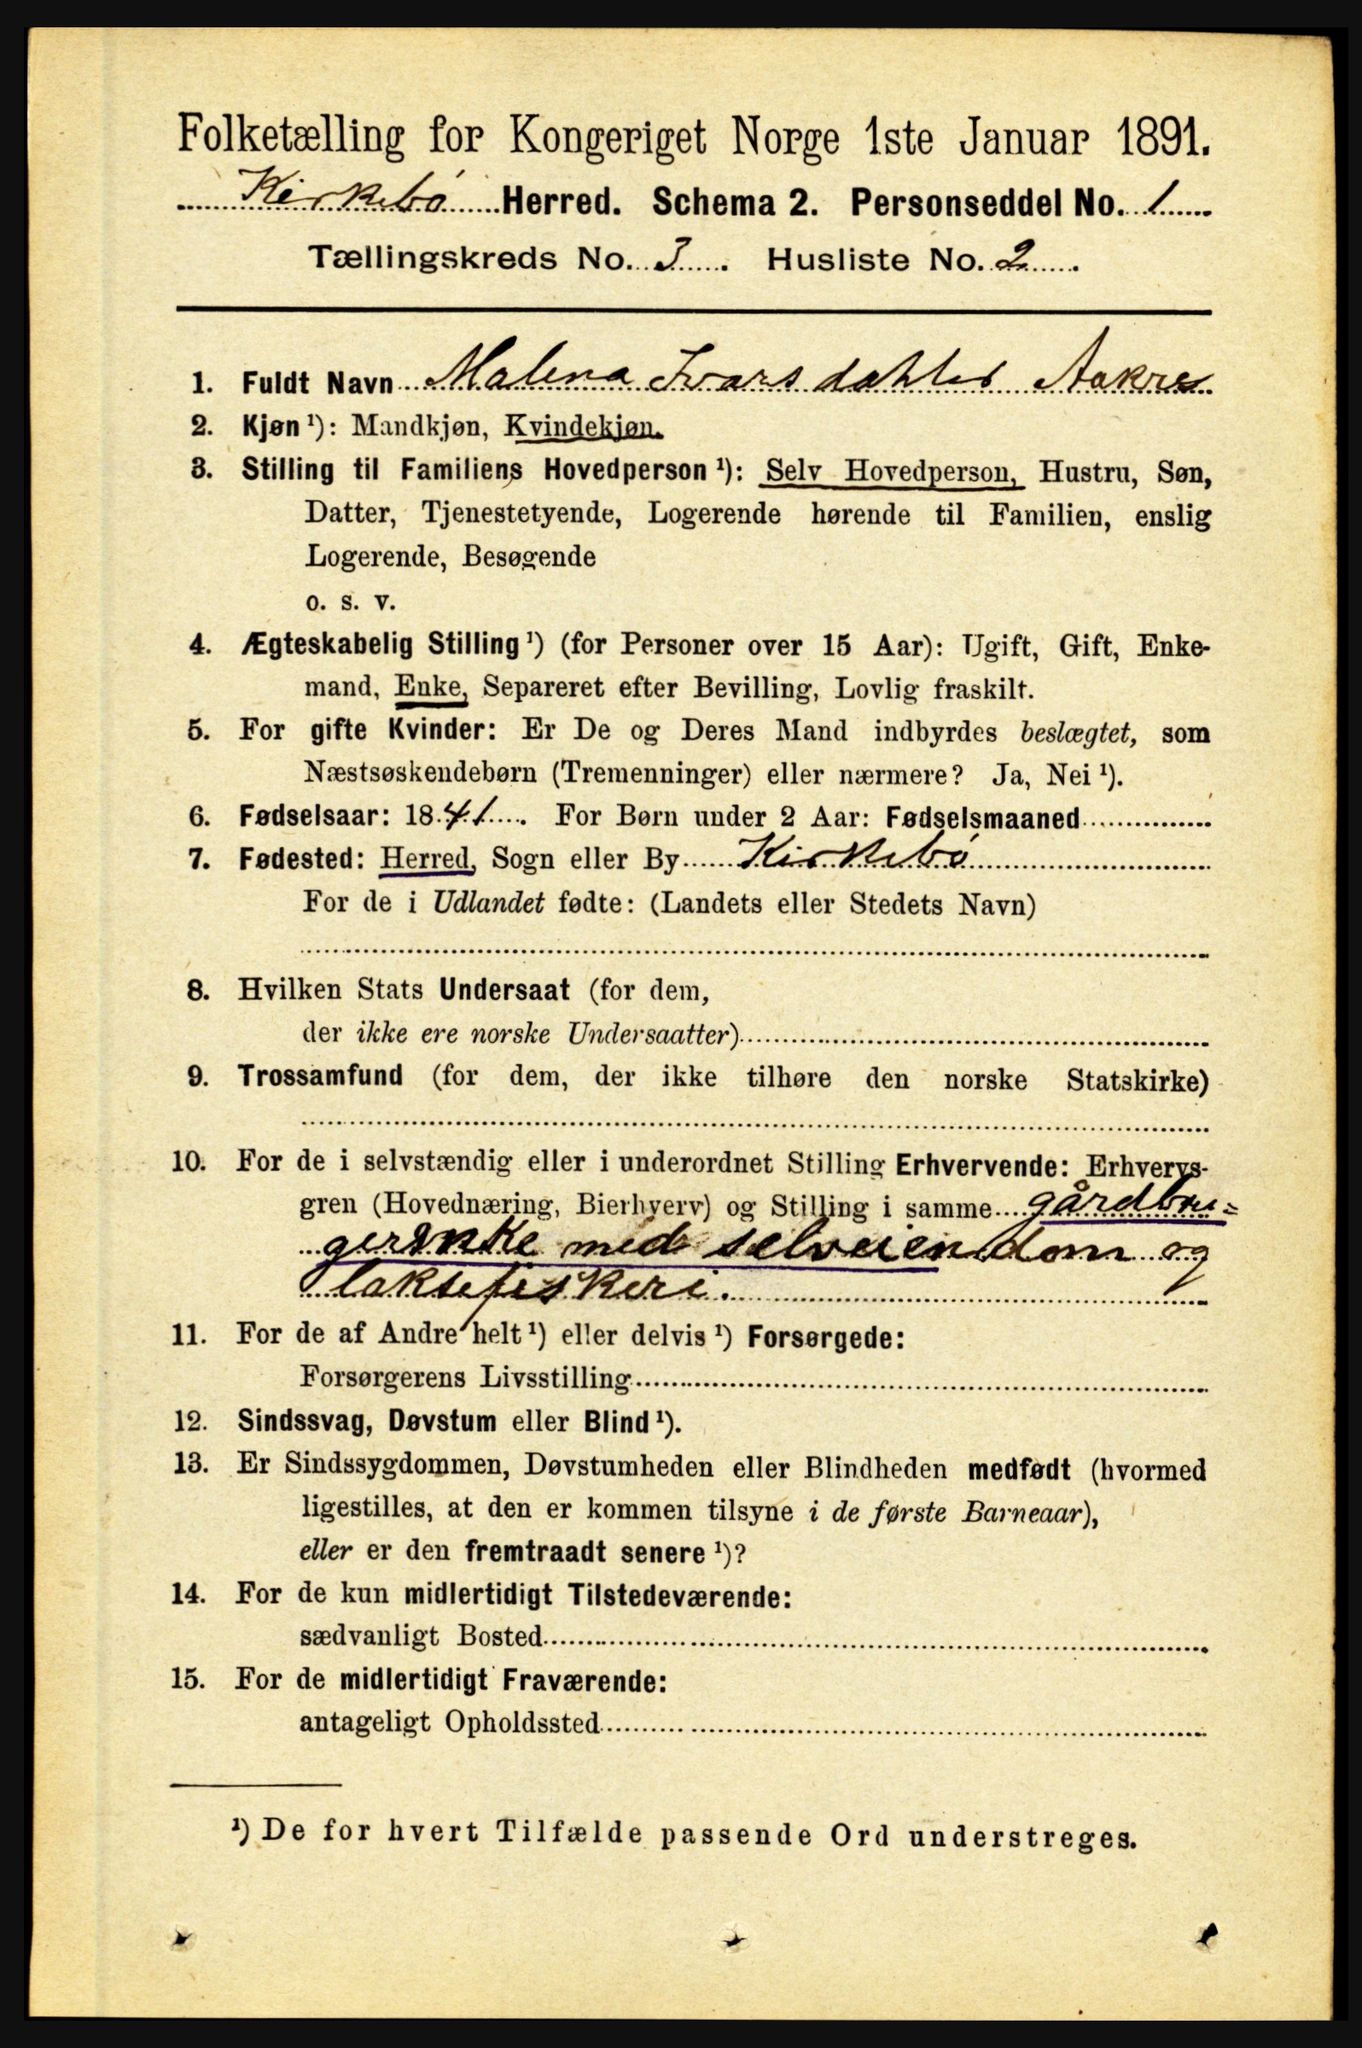 Folketælling for Kongeriget Norge 1ste Januar 1891.
Kirkebö Herred. Schema 2. Personseddel No. 1
Tællingskreds No. 3. Husliste No. 2.
1. Fuldt Navn Malena Ivarsdatter Aakre
2. Kjøn ¹): Mandkjøn, Kvindekjøn.
3. Stilling til Familiens Hovedperson ¹): Selv Hovedperson, Hustru, Søn,
Datter, Tjenestetyende, Logerende hørende til Familien, enslig
Logerende, Besøgende
o. s. v.
4. Ægteskabelig Stilling ¹) (for Personer over 15 Aar): Ugift, Gift, Enke-
mand, Enke, Separeret efter Bevilling, Lovlig fraskilt.
5. For gifte Kvinder: Er De og Deres Mand indbyrdes beslægtet, som
Næstsøskendebørn (Tremenninger) eller nærmere? Ja, Nei ¹).
6. Fødselsaar: 1841. For Børn under 2 Aar: Fødselsmaaned
7. Fødested: Herred, Sogn eller By Kirkebö
For de i Udlandet fødte: (Landets eller Stedets Navn)
8. Hvilken Stats Undersaat (for dem,
der ikke ere norske Undersaatter)
9. Trossamfund (for dem, der ikke tilhøre den norske Statskirke)
10. For de i selvstændig eller i underordnet Stilling Erhvervende: Erhvervs-
gren (Hovednæring, Bierhverv) og Stilling i samme gårdbru=
gerenke med selveiendom og
laksefiskeri.
11. For de af Andre helt ¹) eller delvis ¹) Forsørgede:
Forsørgerens Livsstilling
12. Sindssvag, Døvstum eller Blind ¹).
13. Er Sindssygdommen, Døvstumheden eller Blindheden medfødt (hvormed
ligestilles, at den er kommen tilsyne i de første Barneaar),
eller er den fremtraadt senere ¹)?
14. For de kun midlertidigt Tilstedeværende:
sædvanligt Bosted
15. For de midlertidigt Fraværende:
antageligt Opholdssted
¹) De for hvert Tilfælde passende Ord understreges.